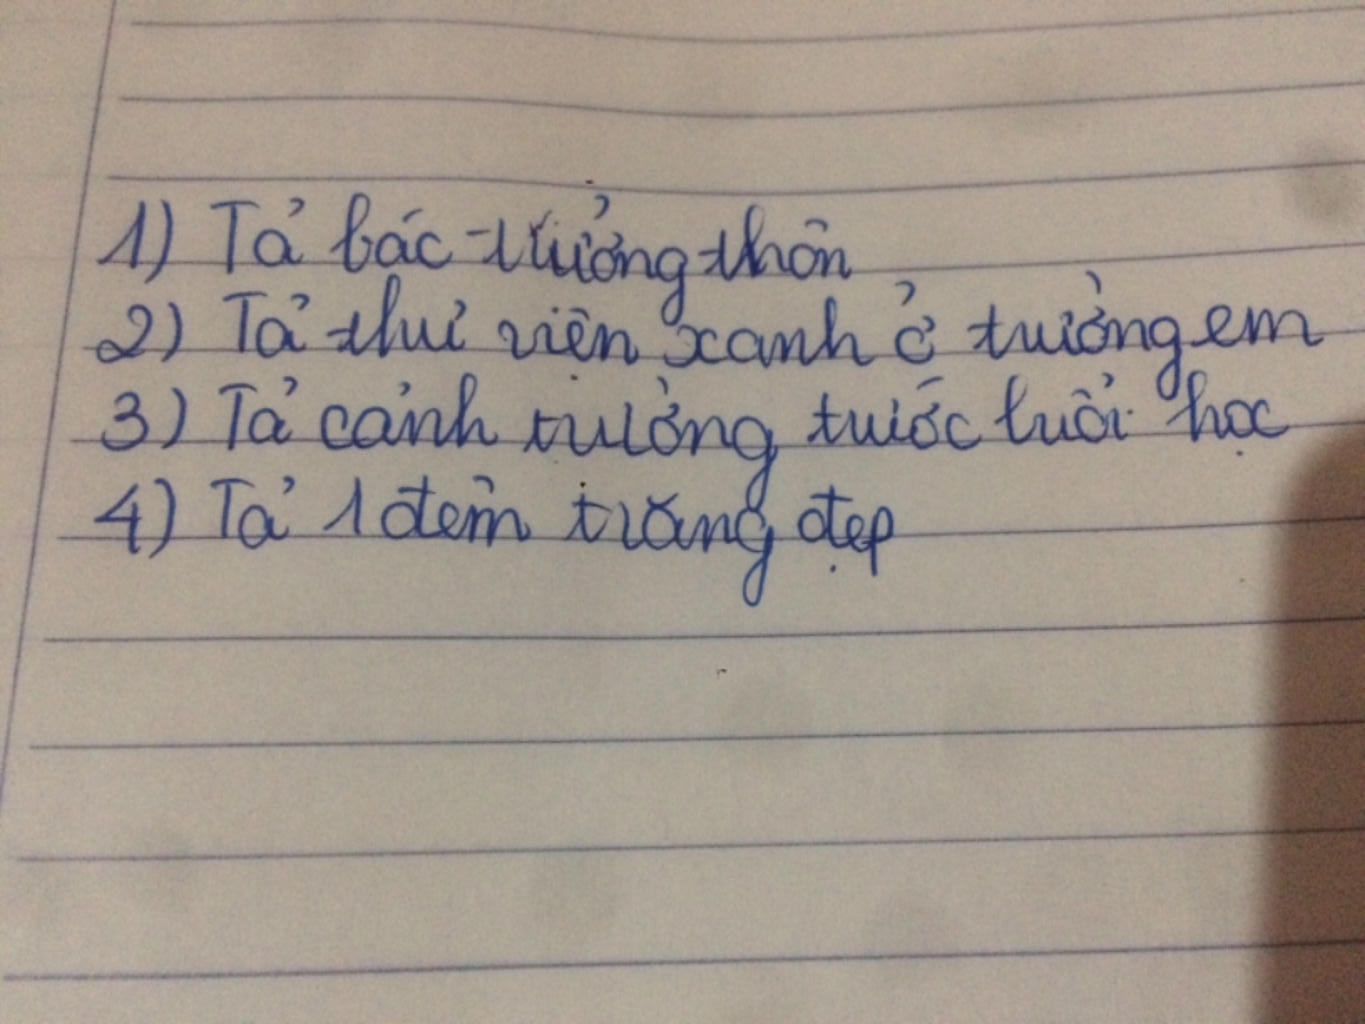 1) Tả bác trưởng thôn
2) Tả thư viện xanh ở trường em
3) Tả cảnh trường trước buổi học
4) Tả 1 đêm trăng đẹp